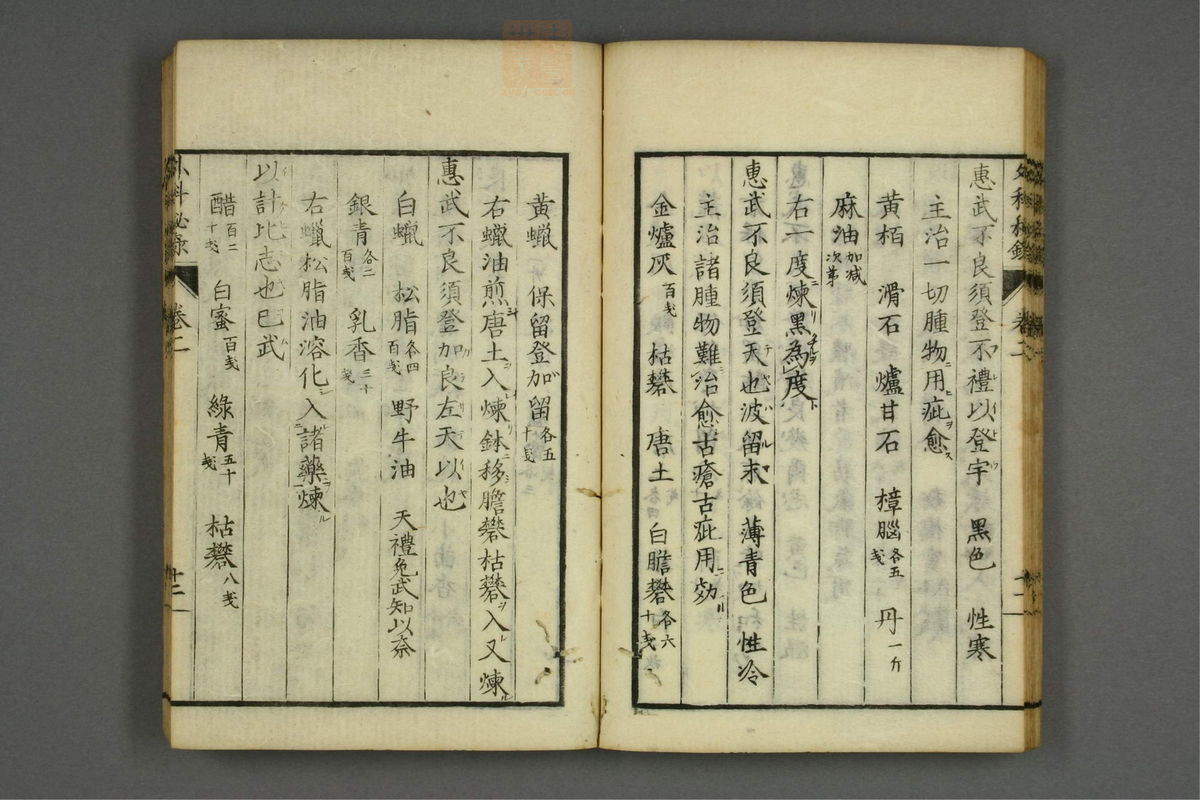 惠武不良須登不禮以登宇　黑色　性寒
主治一切腫物ニ用ヒ疵ヲ愈ス
黄栢　滑石　爐甘石　樟腦各五戔　丹一斤
麻油加减次第
右一度ニ煉リ黑為度
惠武不良須登天也波留末　薄青色　性冷
主治諸腫物難治愈古瘡古疵用ニ効
金爐灰百戔　枯礬　唐土　白膽礬各六十戔
黄蠟　保留登加留各五十戔
右蠟油煎唐土ヲ入レ煉リ鉢ニ移膽礬枯礬ヲ入レ又煉ル
惠武不良須登加良左天以也
白蠟　松脂各四百戔　野牛油　天禮免武知以奈
銀青各二百戔　乳香三十戔
右蠟松脂油溶化シ入諸藥ヲ煉ル
以計比志也巴武
醋百二十戔　白蜜百戔　綠青五十戔　枯礬八戔
外科秘录
卷二
十二